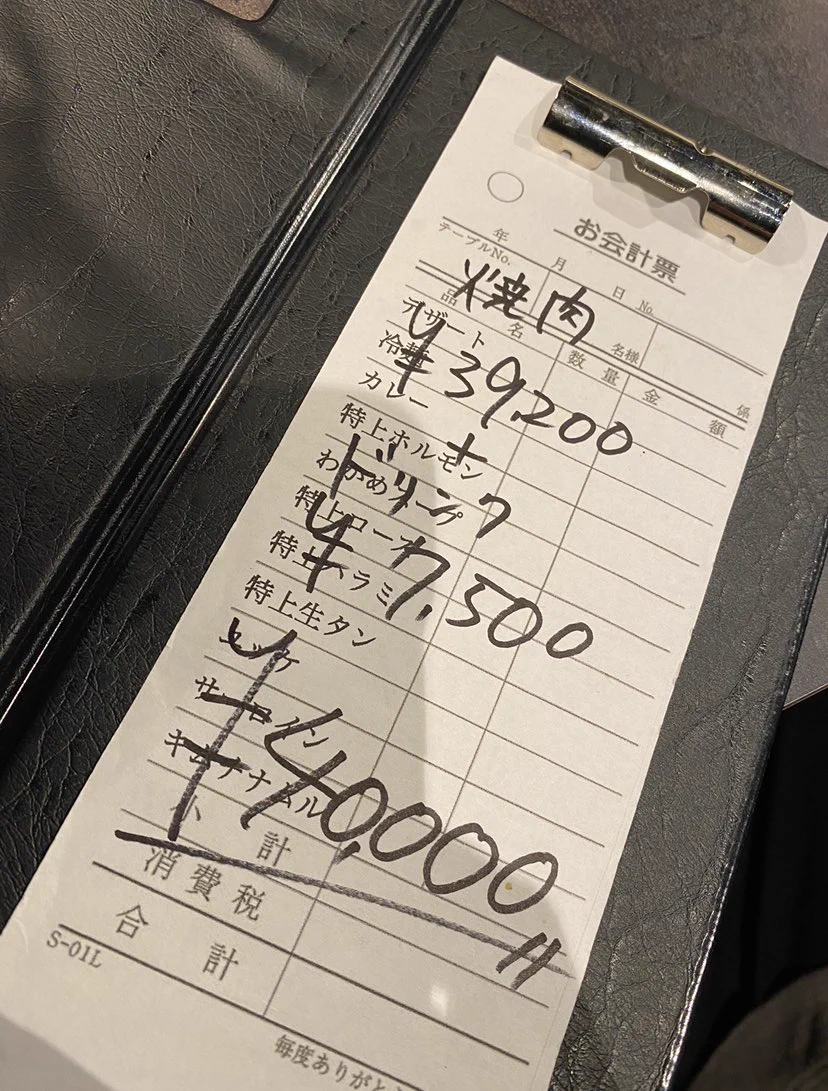 お会計票
年 月 日 No.
テーブルNo. 名様 係
焼肉
品名 数量 金額
デザート
¥39,200
冷麺
カレー
+
特上ホルモン
ドリンク
わかめスープ
¥7,500
特上ロース
特上ハラミ
特上生タン
ユッケ
サーロイン
¥40,000
キムチナムル
小計
消費税
合計
S-01L
毎度ありがと